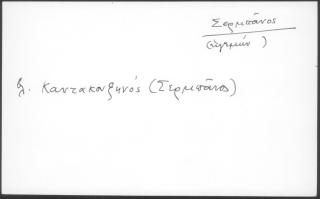 Σερμπάνος
(ηγεμών )
βλ. Καντακουζηνός (Σερμπάνος)